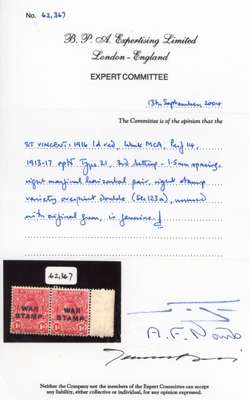 No. 62,367
B. P. A. Expertising Limited
London - England
EXPERT COMMITTEE
13th September 2004
The Committee is of the opinion that the
ST VINCENT: 1916 1d red, Wmk MCA, Perf 14,
1913-17 optd Type 21, 3rd setting - 1.5mm spacing,
right marginal horizontal pair, right stamp
variety overprint double (SG 123a), unused
with original gum, is genuine.
62,367
WAR WAR
STAMP. STAMP.
Neither the Company nor the members of the Expert Committee can accept
any liability, either collective or individual, for any opinion expressed.